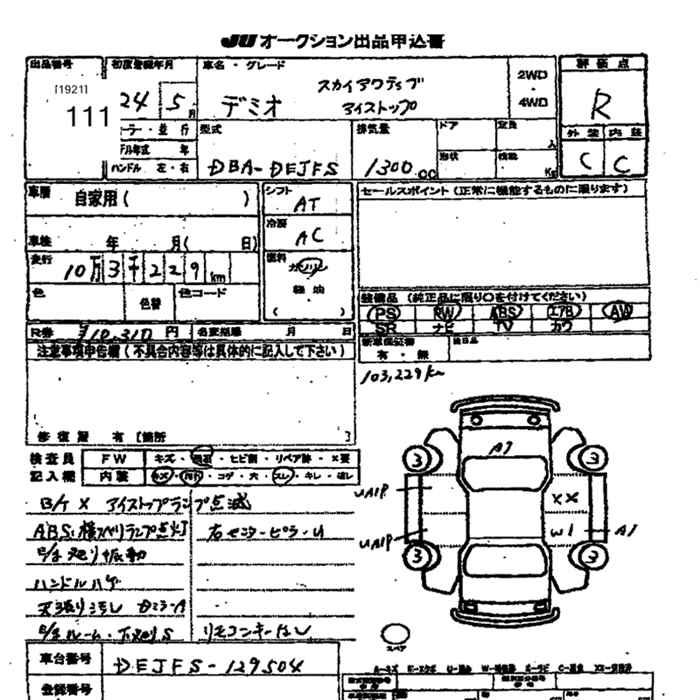 JU オークション出品申込書
出品番号 初度登録年月 車名・グレード 2WD ・ 4WD 評価点
[1921] 111 24 5月 デミオ スカイアクティブ アイストップ R
型式 排気量 ドア 定員 人 外装 内装
ハンドル 左・右 DBA-DEJFS 1300.00 形状 C C
車歴 自家用( ) シフト AT セールスポイント(正常に機能するものに限ります)
車検 年 月( 日) 冷房 AC
走行 10万3千229km 燃料 ガソリン
色 色替 色コード 軽油
( )
装備品(純正品に限り○を付けてください)
PS RW ABS エアB AW
SR ナビ TV カワ
R券 ¥10,310円 名変期限 月 日
新車保証書 有・無
注意事項申告欄(不具合内容等は具体的に記入して下さい)
103,229km
修復歴 有[箇所 ]
検査員 FW キズ・飛石・ヒビ割・リペア跡・X要
記入欄 内装 キズ・汚れ・コゲ・穴・スレ・キレ・
B/K X アイストップランプ点滅
ABS・横スベリランプ点灯 右センターピラーU
振動
ハンドルハゲ
天張り汚レ
リモコンキーなし
A1
3 3
UAIP XX
UAIP W1 A1
3 3
スペア
車台番号 DEJFS-129504
登録番号